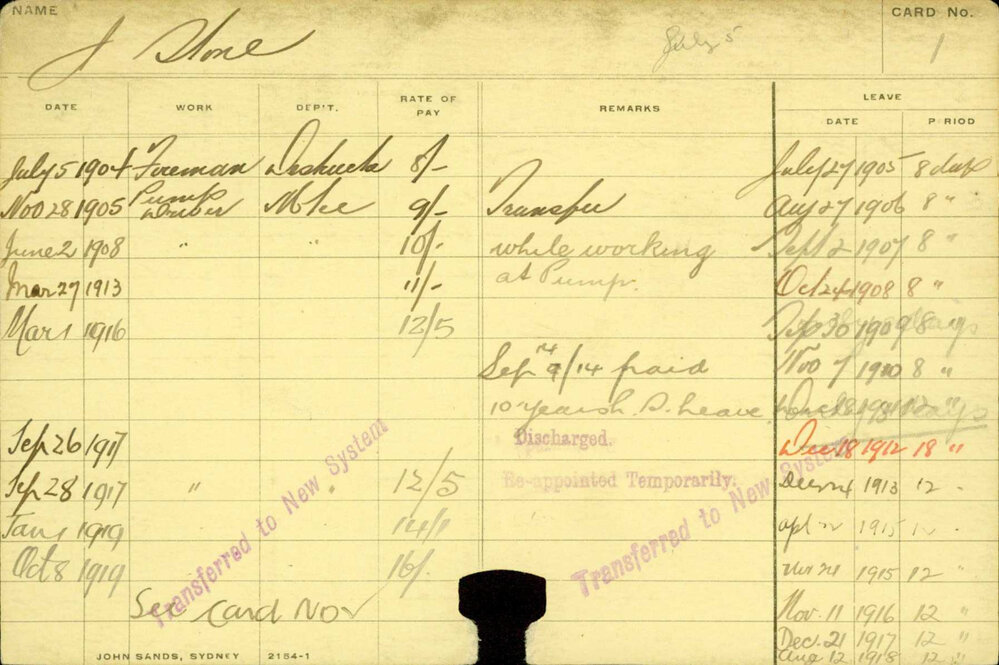 NAME
CARD No.
J Stone
July 5
1
DATE WORK DEP'T. RATE OF PAY REMARKS LEAVE
DATE PERIOD
July 5 1904 Fireman 8/- July 27 1905 8 days
Nov 28 1905 Pump 9/- Transfer Aug 27 1906 8 "
June 2 1908 " " 10/- while working Sept 2 1907 8 "
Mar 27 1913 11/- at Pump. Oct 24 1908 8 "
Mar 1 1916 12/5 Sep 30 1909 8 "
Sep 14 paid Nov 7 1910 8 "
10 years L. S. Leave 1911 12 "
Sep 26 1917 Discharged. Dec 18 1912 18 "
Sep 28 1917 " " 12/5 Re-appointed Temporarily. Dec 24 1913 12 "
Jan 1 1919 14/1 Apl 1915 12 "
Oct 8 1919 16/- Nov 24 1915 12 "
Transferred to New System
Transferred to New System
See Card No 2
Nov. 11 1916 12 "
Dec. 21 1917 12 "
Aug 12 1918 12 "
JOHN SANDS, SYDNEY 2154-1